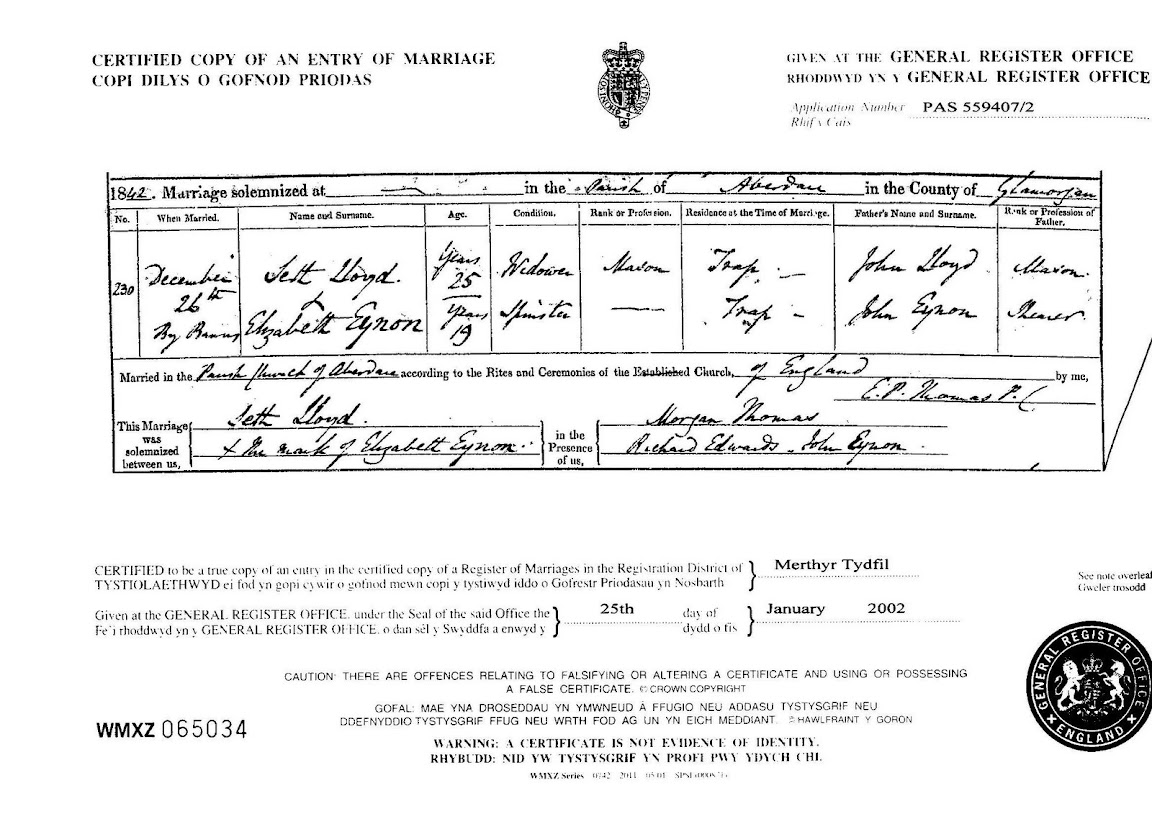 CERTIFIED COPY OF AN ENTRY OF MARRIAGE
COPI DILYS O GOFNOD PRIODAS
GIVEN AT THE GENERAL REGISTER OFFICE
RHODDWYD YN Y GENERAL REGISTER OFFICE
Application Number PAS 559407/2
Rhif y Cais
1842. Marriage solemnized at in the Parish of Aberdare in the County of Glamorgan
No. When Married. Name and Surname. Age. Condition. Rank or Profession. Residence at the Time of Marriage. Father's Name and Surname. Rank or Profession of Father.
230 December 26th By Banns
Seth Lloyd. Years 25 Widower Mason Trap John Lloyd Mason.
Elizabeth Eynon Years 19 Spinster Trap John Eynon
Married in the Parish Church of Aberdare according to the Rites and Ceremonies of the Established Church, of England by me,
E. P. Thomas P. C
This Marriage was solemnized between us,
Seth Lloyd.
X The mark of Elizabeth Eynon.
in the Presence of us,
Morgan Thomas
Richard Edwards. John Eynon.
CERTIFIED to be a true copy of an entry in the certified copy of a Register of Marriages in the Registration District of Merthyr Tydfil
TYSTIOLAETHWYD ei fod yn gopi cywir o gofnod mewn copi y tystiwyd iddo o Gofrestr Priodasau yn Nosbarth
See note overleaf
Gweler trosodd
Given at the GENERAL REGISTER OFFICE, under the Seal of the said Office the 25th day of January 2002
Fe'i rhoddwyd yn y GENERAL REGISTER OFFICE, o dan sêl y Swyddfa a enwyd y dydd o fis
CAUTION: THERE ARE OFFENCES RELATING TO FALSIFYING OR ALTERING A CERTIFICATE AND USING OR POSSESSING
A FALSE CERTIFICATE. © CROWN COPYRIGHT
GOFAL: MAE YNA DROSEDDAU YN YMWNEUD Â FFUGIO NEU ADDASU TYSTYSGRIF NEU
DDEFNYDDIO TYSTYSGRIF FFUG NEU WRTH FOD AG UN YN EICH MEDDIANT. © HAWLFRAINT Y GORON
WMXZ 065034
WARNING: A CERTIFICATE IS NOT EVIDENCE OF IDENTITY.
RHYBUDD: NID YW TYSTYSGRIF YN PROFI PWY YDYCH CHI.
WMXZ Series
GENERAL REGISTER OFFICE
ENGLAND